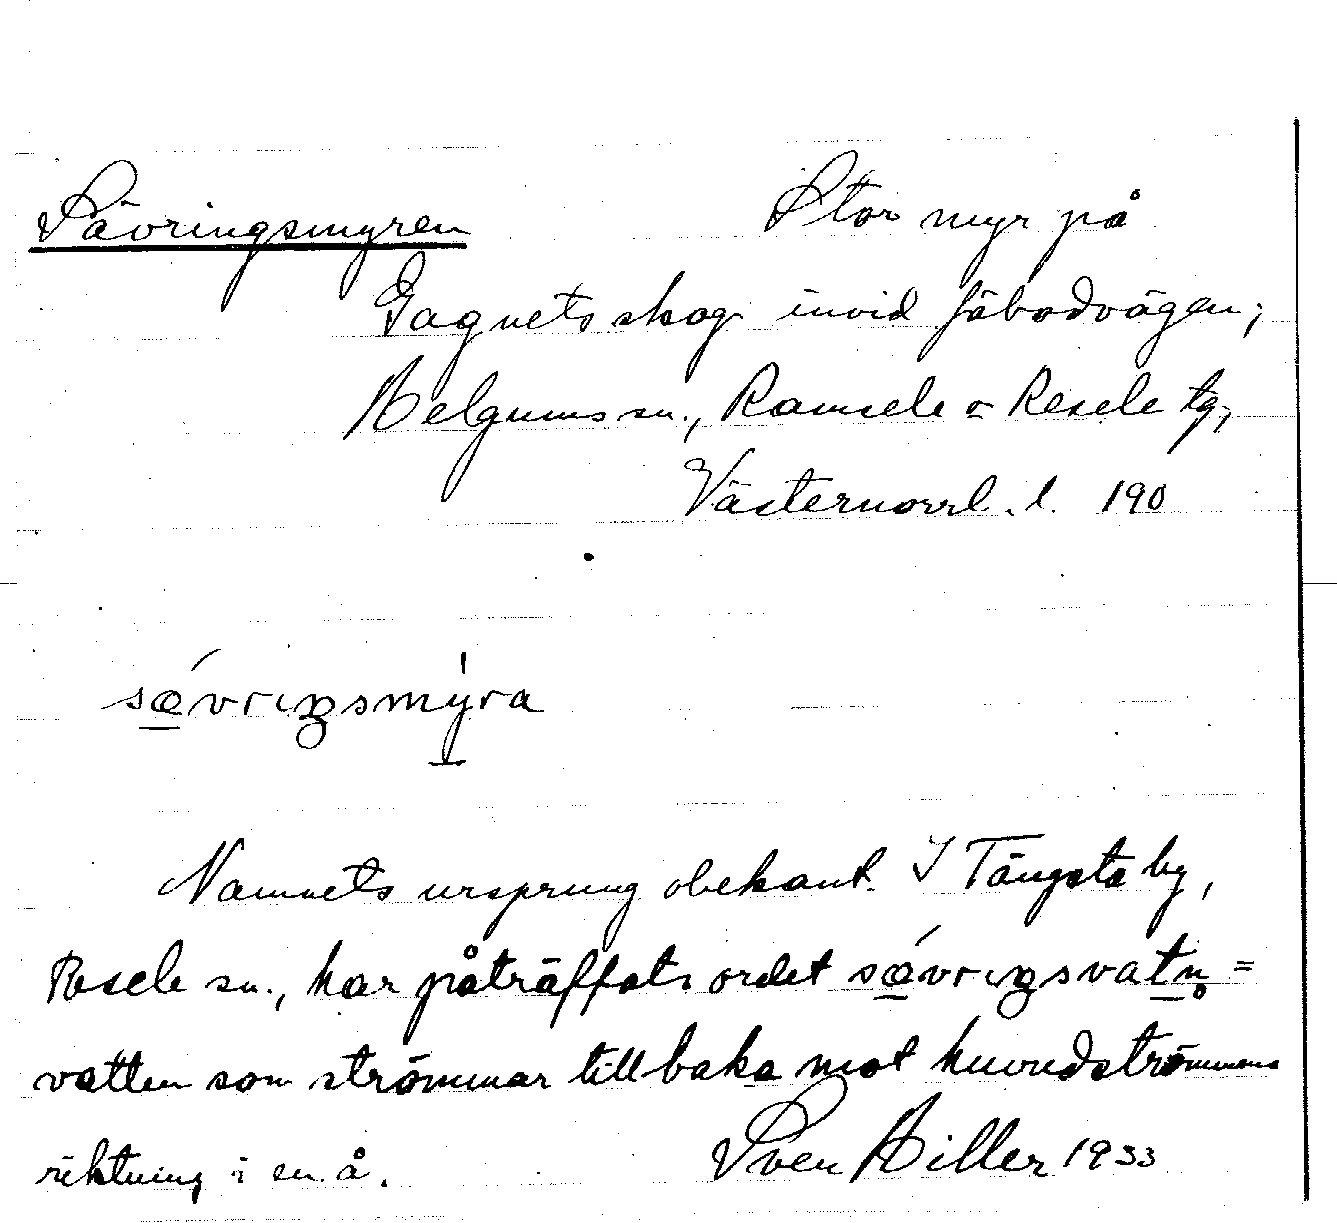 Sävringsmyren Stor myr på
Gagnets skog invid fäbodvägen;
Helgums sn., Ramsele o Resele tg,
Västernorrl. l. 190
sǽvrɩŋsmy̍ra
Namnets ursprung obekant. I Tängsta by,
Resele sn., har påträffats ordet sǽvrɩŋsvatn̥ =
vatten som strömmar tillbaka mot huvudströmmens
riktning i en å. Sven Hiller 1933